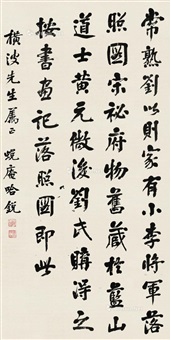 常熟劉以則家有小李將軍落
照圖宗祕府物舊藏於藍山
道士黃元微後劉氏購得之
按書畫記落照圖即此
橫波先生屬正 蜕庵哈銳